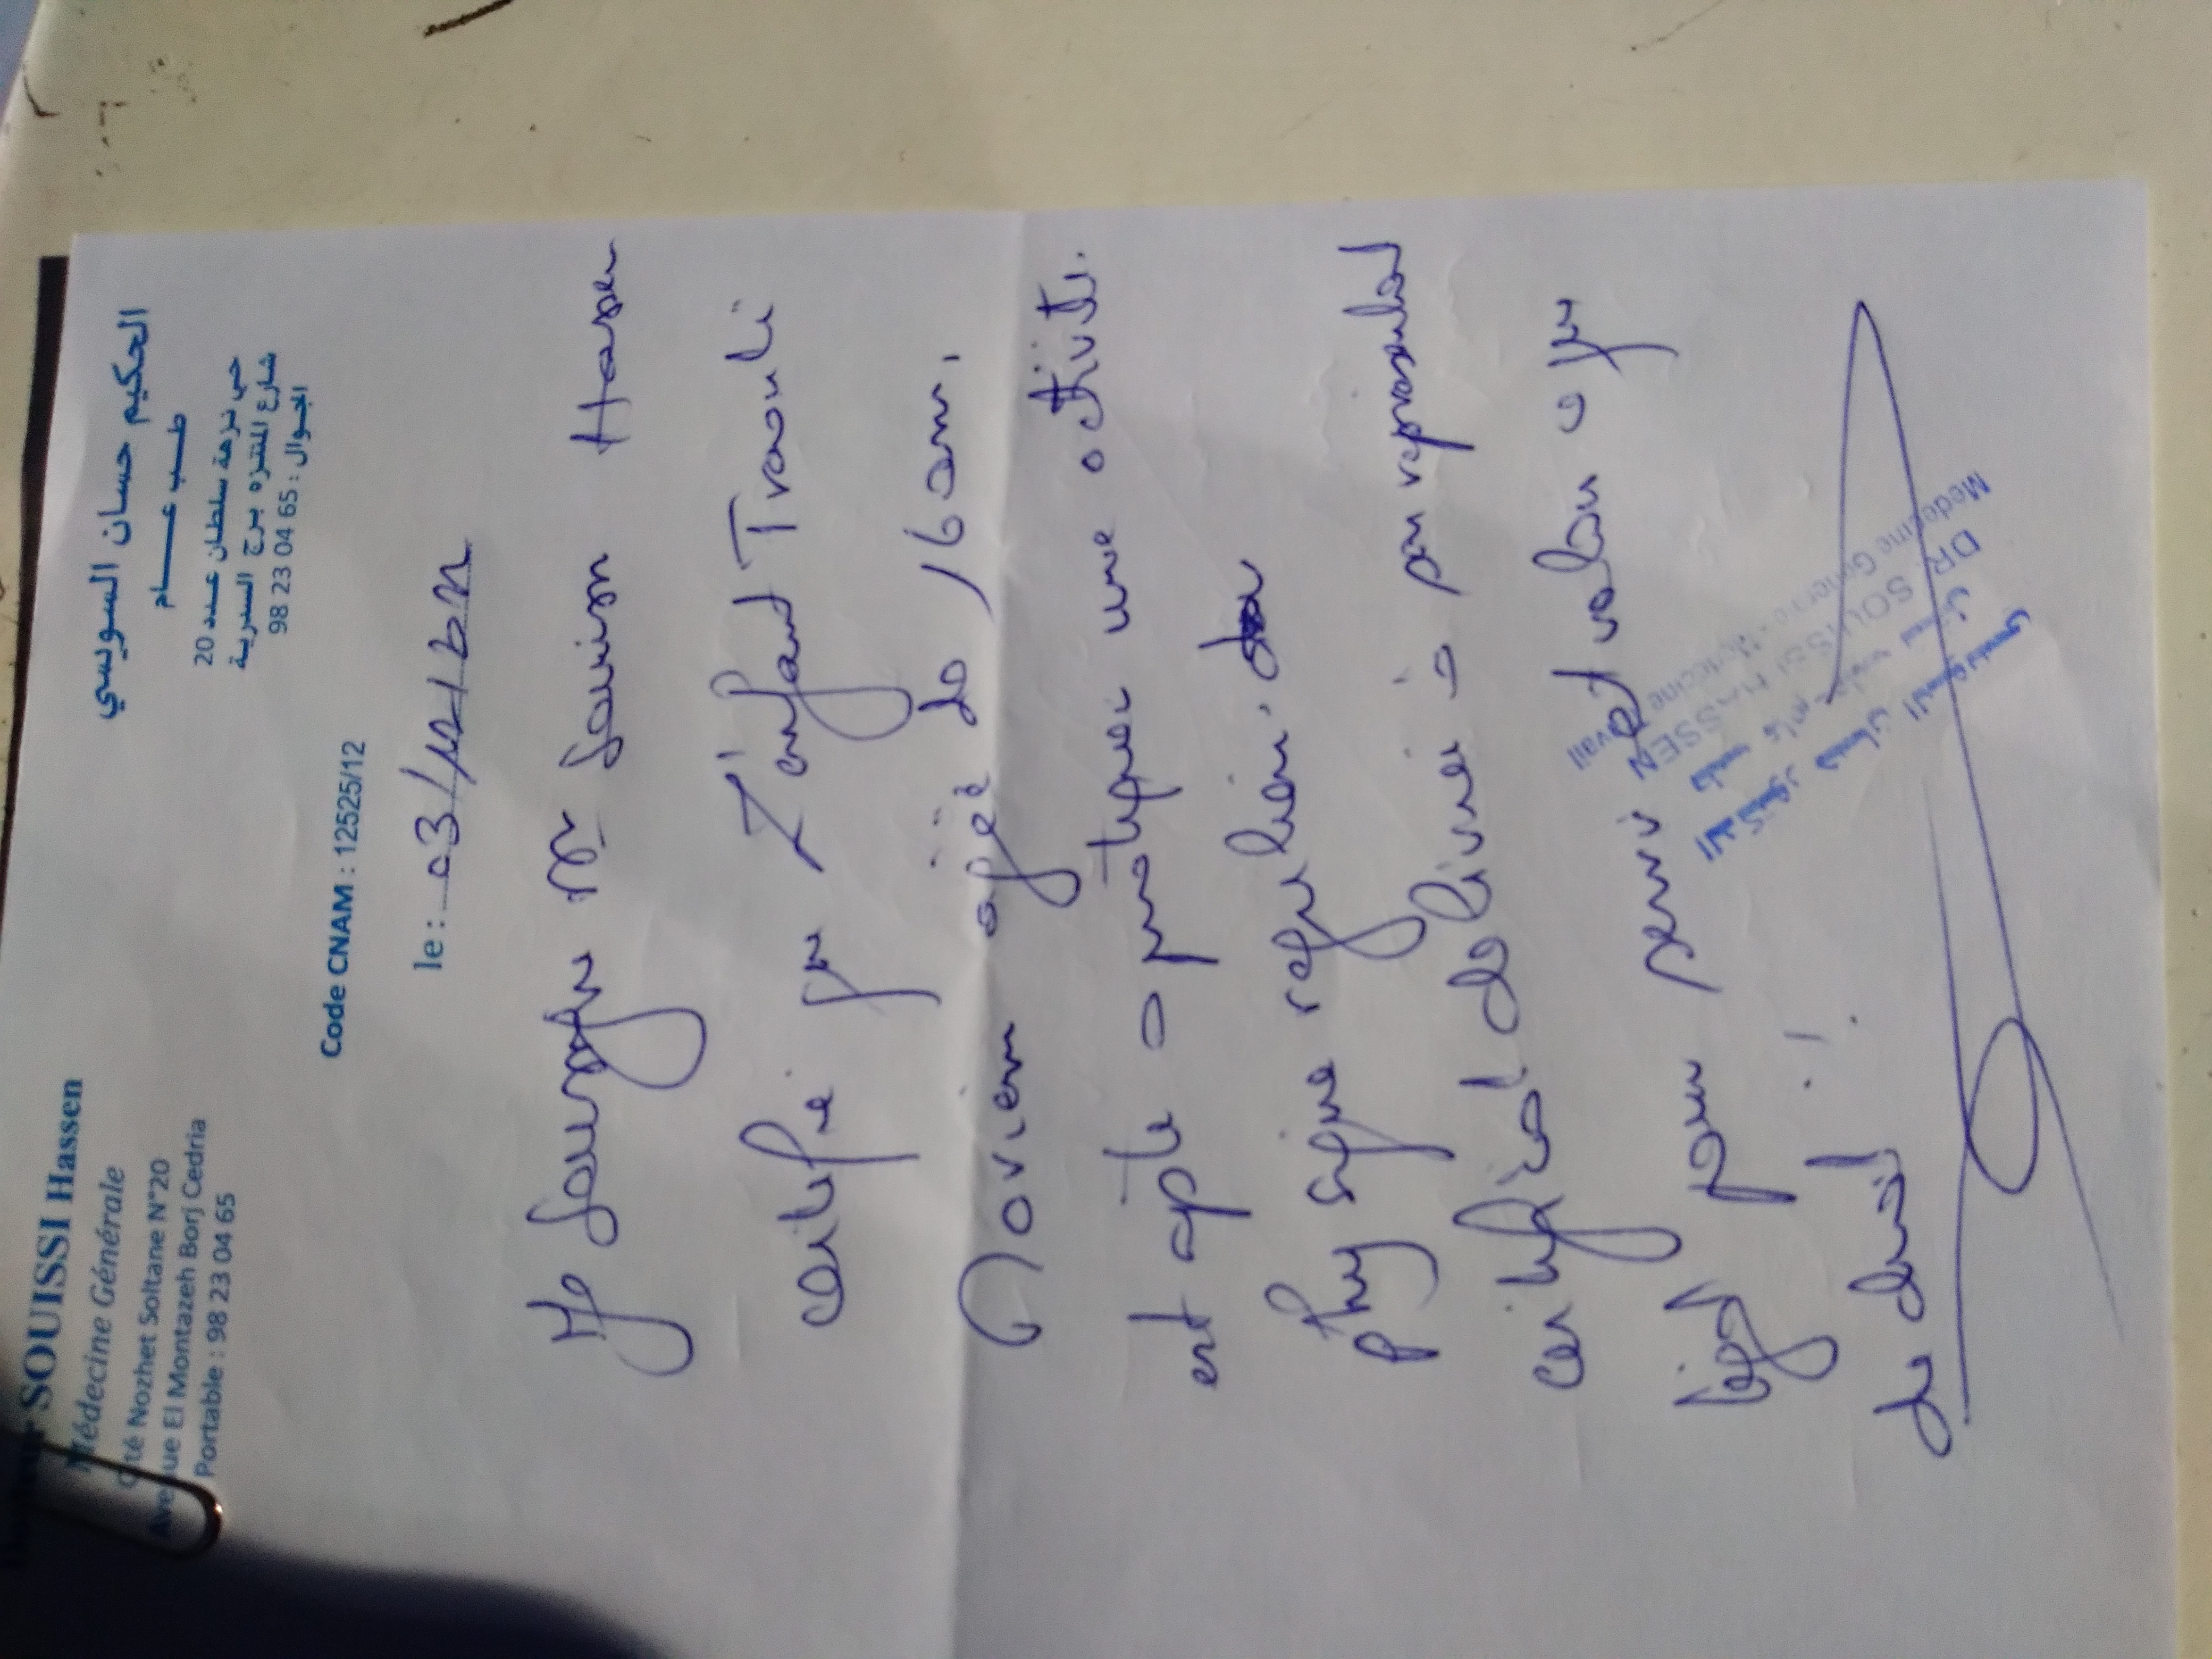 Docteur SOUISSI Hassen
Médecine Générale
Cité Nozhet Soltane N°20
Avenue El Montazeh Borj Cedria
Portable : 98 23 04 65
الحكيم حسان السويسي
طب عام
حي نزهة سلطان عدد 20
شارع المنتزه برج السدرية
الجوال : 98 23 04 65
Code CNAM : 12525/12
le : 03/12/
Je soussigné Dr Souissi Hassen
certifie que L'enfant Traouli
Mariem agée de 16 ans,
est apte a pratiquer une activité
physique regulière.
certificat delivrée à son representant
légal pour servir et valoir ce que
de droit
الدكتور حسان السويسي
طب عام طب
DR. SOUISSI HASSEN
Médecine Générale - Médecine Travail